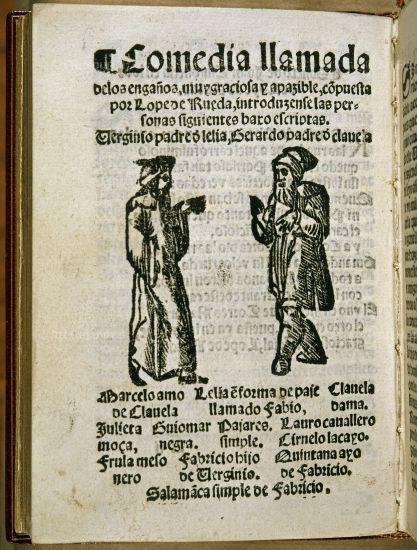 ¶ Comedia llamada
delos engaños, muy graciosa y apazible, cõpuesta
por Lope de Rueda, introduzense las per-
sonas siguientes baxo escriptas.
Verginio padre õ lelia, Gerardo padre õ clauela
Marcelo amo Lelia ẽ forma de paje Clauela
de Clauela llamado Fabio, dama.
Julieta Guiomar Pajares. Lauro cauallero
moça, negra. simple. Criuelo lacayo.
Frula meso Fabricio hijo Quintana ayo
nero de Verginio. de Fabricio.
Salamãca simple de Fabricio.